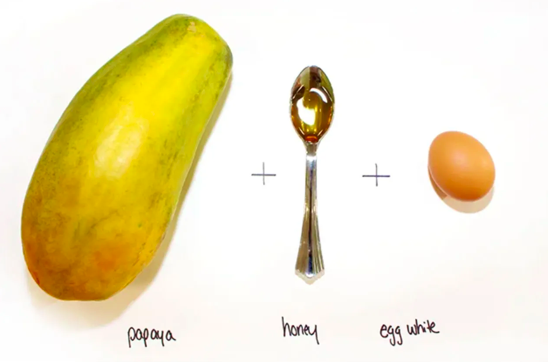 + +
papaya honey egg white